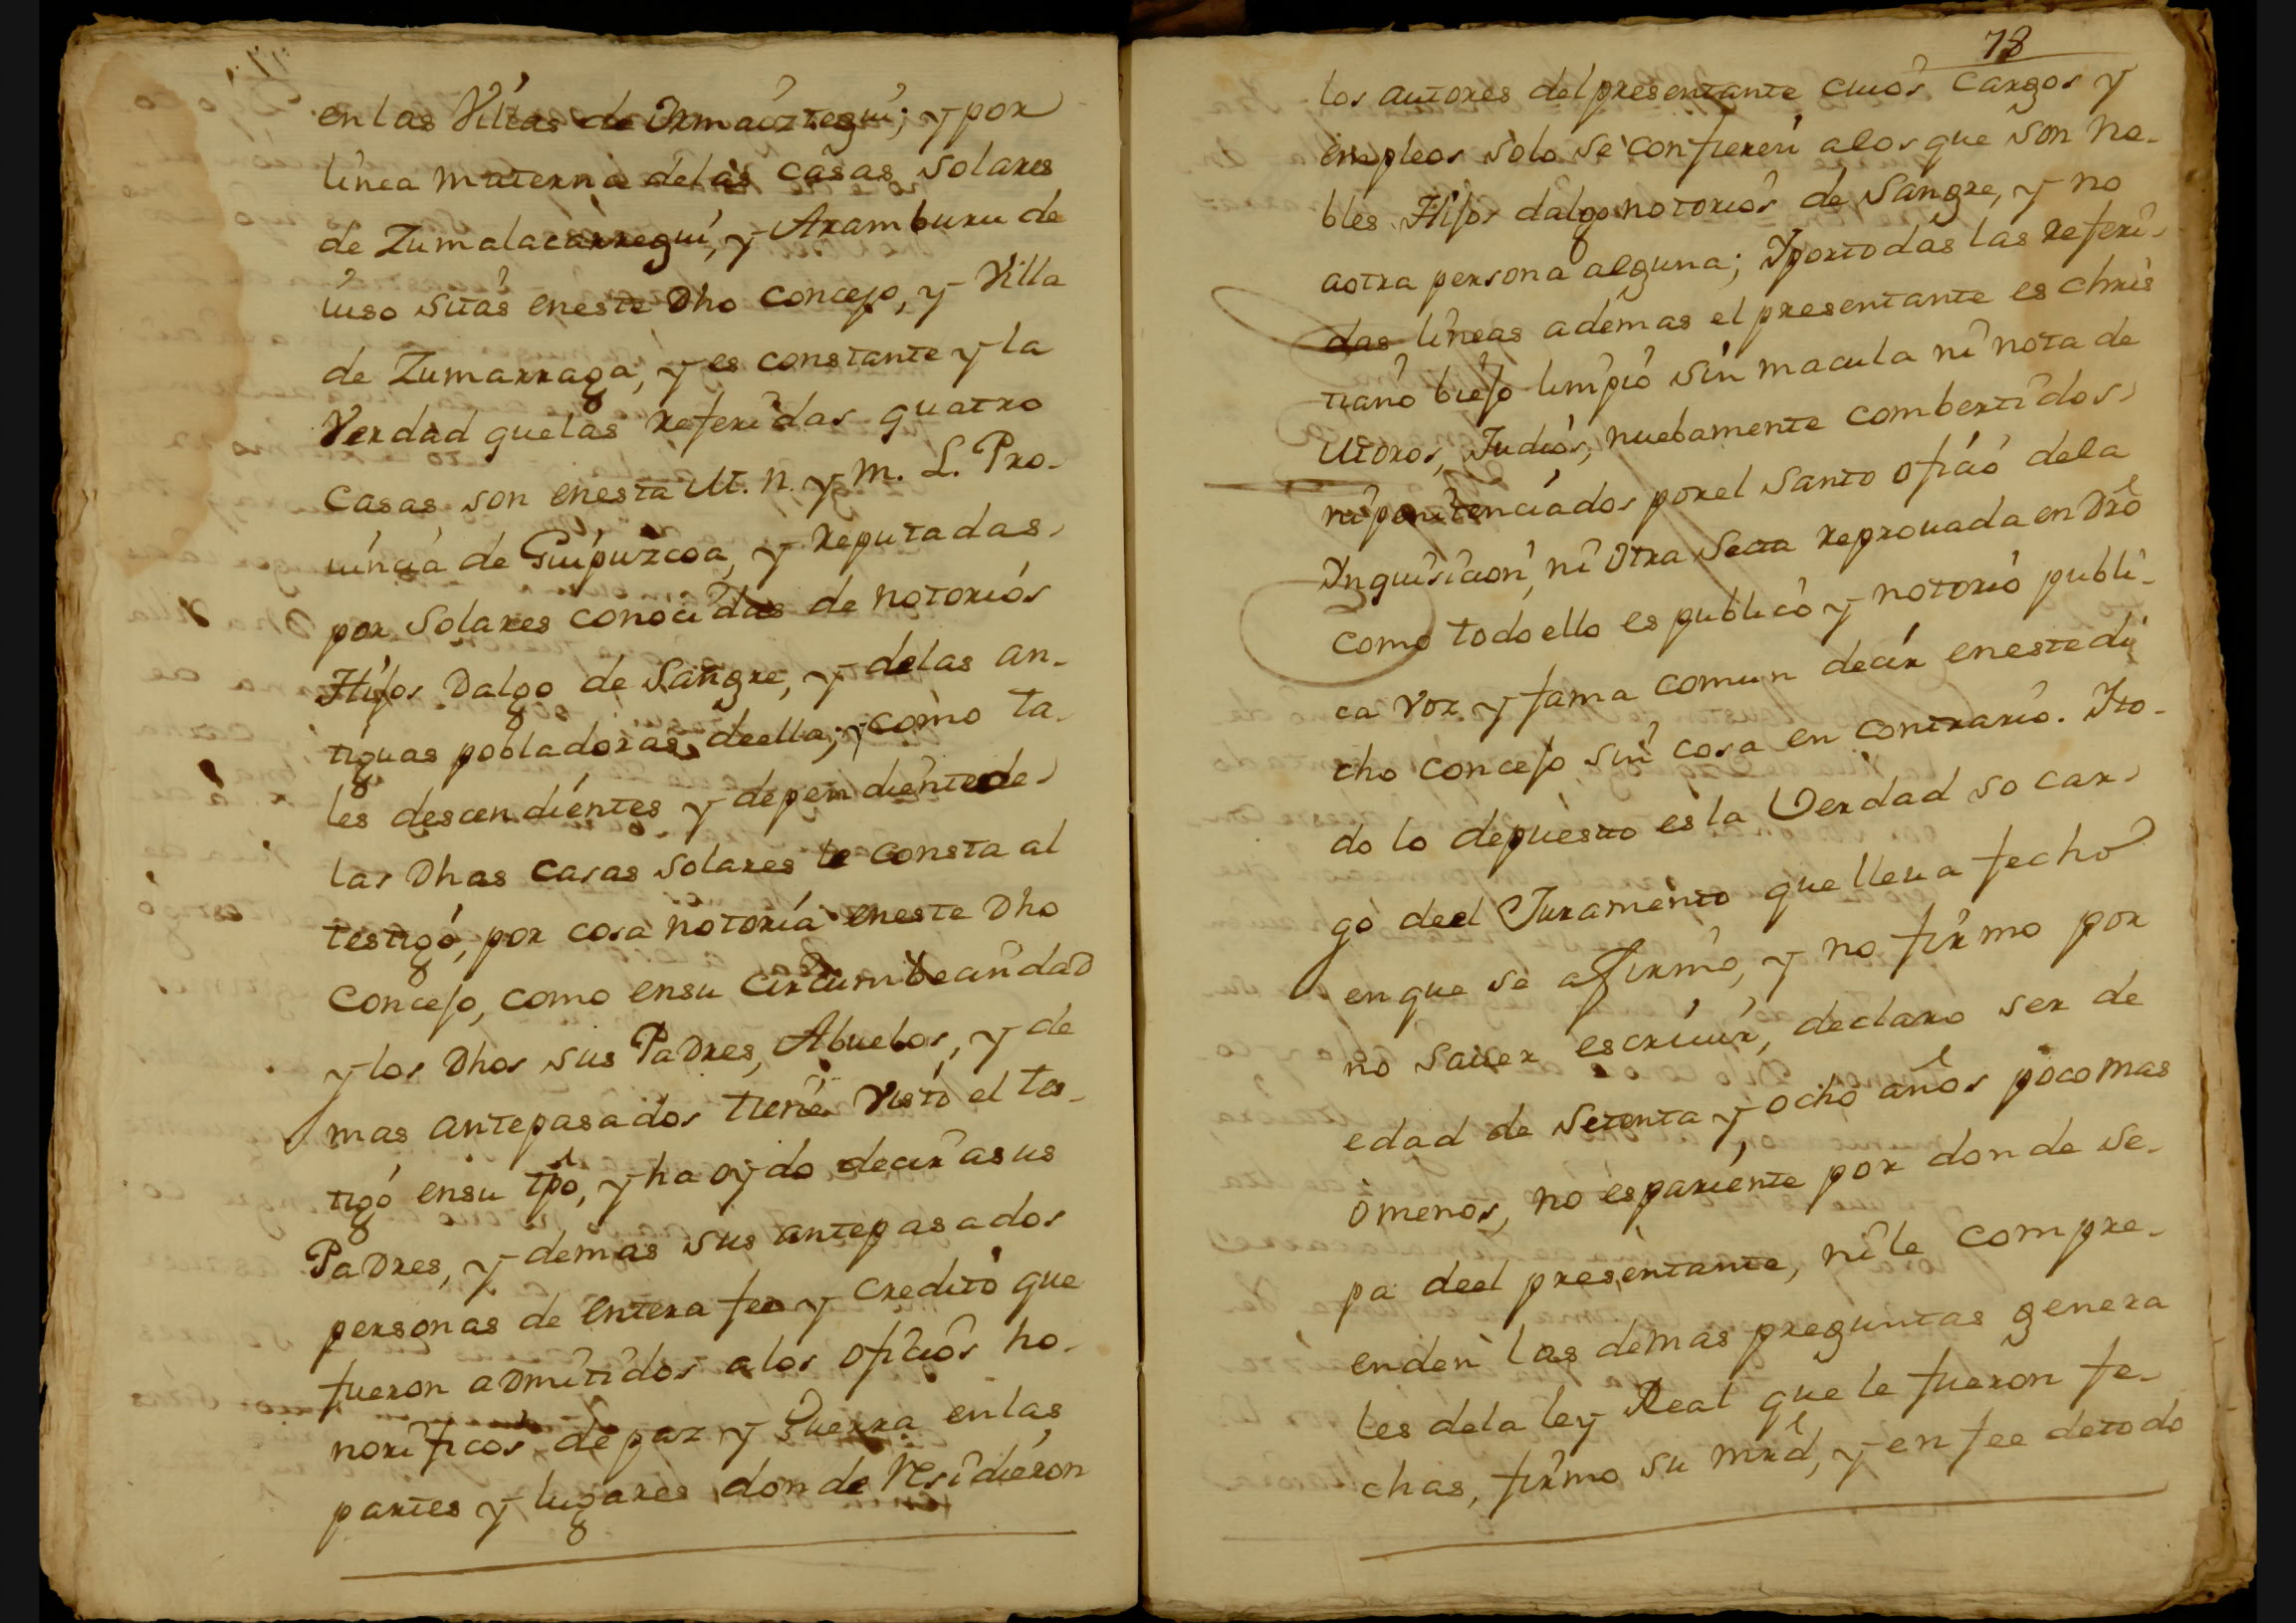 en las Villas de Ormaiztegui; y por
linea materna de las casas solares
de Zumalacarregui, y Aramburu de
iuso sitas en este Dho concejo, y Villa
de Zumarraga, y es constante y la
Verdad que las referidas quatro
casas son en esta M. N. y M. L. Pro-
uincia de Guipuzcoa, y reputadas
por solares conocidas de notorios
Hijos Dalgo de Sangre, y de las an-
tiguas pobladoras de ella; y como ta-
les descendientes y dependiente de
las Dhas casas solares le consta al
testigo, por cosa notoria en este Dho
Concejo, como en su circumbecindad
y los Dhos sus Padres, Abuelos, y de
mas antepasados tiene visto el tes-
tigo en su tpo, y ha oydo decir a sus
Padres, y demas sus antepasados
personas de entera fee y credito que
fueron admitidos a los oficios ho-
norificos de paz y Guerra en las
partes y lugares donde residieron
78
los autores del presentante cuios cargos y
empleos solo se confieren a los que son no-
bles Hijos dalgo notorios de Sangre, y no
a otra persona alguna; Y por todas las referi-
das lineas ademas el presentante es chris
tiano biejo limpio sin macula ni nota de
Moros, Judios, nuebamente combertidos
ni penitenciados por el Santo oficio de la
Ynquisicion, ni otra Secta reprouada en Dro
como todo ello es publico y notorio publi-
ca voz y fama comun decir en este di
cho concejo sin cosa en contrario. Y to-
do lo depuesto es la Verdad so car-
go de el Juramento que lleua fecho
en que se afirmo, y no firmo por
no sauer escriuir, declaro ser de
edad de setenta y ocho años poco mas
o menos, no es pariente por donde se-
pa de el presentante, ni le compre-
enden las demas preguntas genera
les de la ley Real que le fueron fe-
chas, firmo su mrd, y en fee de todo